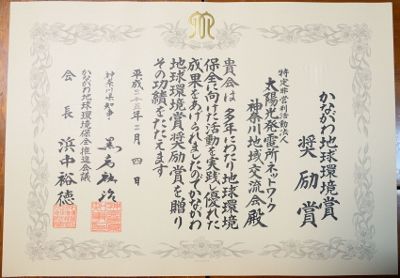 かながわ地球環境賞
奨励賞
特定非営利活動法人
太陽光発電所ネットワーク
神奈川地域交流会殿
貴会は多年にわたり地球環境
保全に向けた活動を実践し優れた
成果をあげられましたのでかながわ
地球環境賞奨励賞を贈り
その功績をたたえます
平成二十三年二月四日
神奈川県知事
かながわ地球環境保全推進会議
会長 浜中裕徳